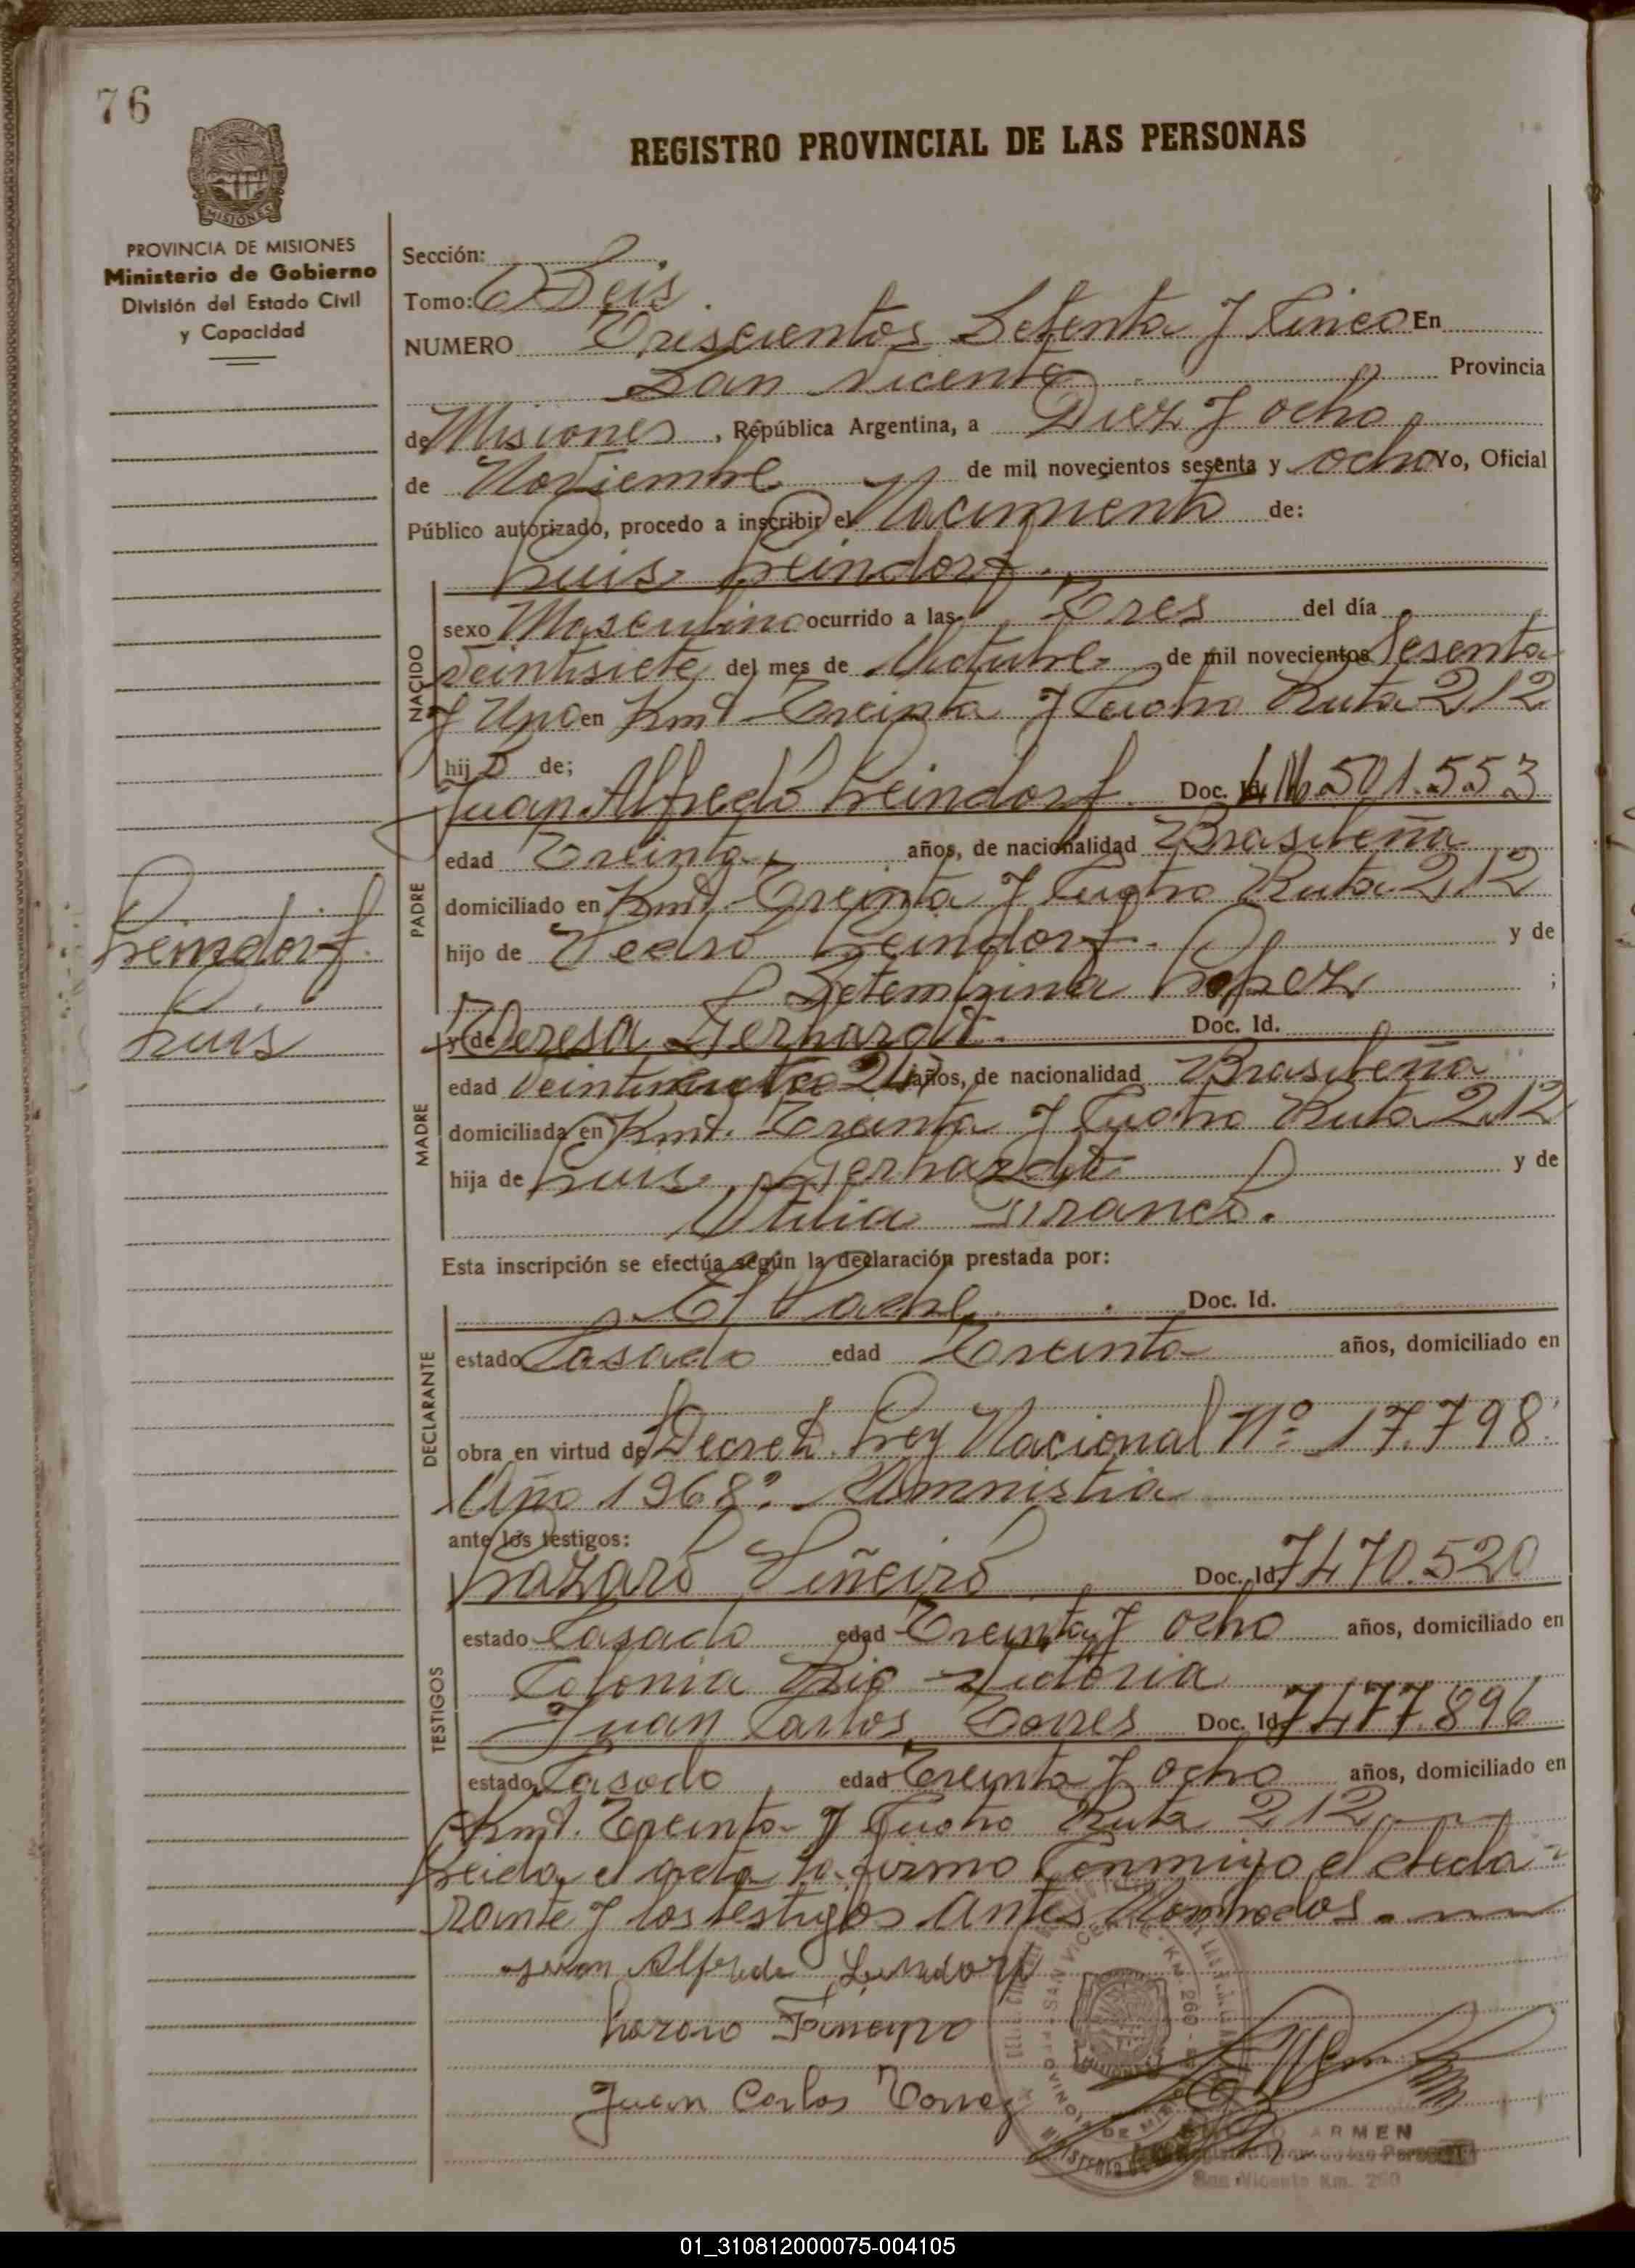 76
REGISTRO PROVINCIAL DE LAS PERSONAS
MISIONES
PROVINCIA DE MISIONES
Ministerio de Gobierno
División del Estado Civil
y Capacidad
Sección:
Tomo: 6 Seis
NUMERO Triscientos Setenta y Cinco En
San Vicente Provincia
de Misiones, República Argentina, a Diez y ocho
de Noviembre de mil novecientos sesenta y ocho Yo, Oficial
Público autorizado, procedo a inscribir el Nacimiento de:
Luis Leindorf.
NACIDO
sexo Masculino ocurrido a las Tres del día
Veintisiete del mes de Octubre de mil novecientos Sesenta
y Uno en Kmt. Treinta y Cuatro Ruta 212
hijo de;
PADRE
Juan Alfredo Leindorf. Doc. Id. 501.553
edad Treinta años, de nacionalidad Brasileña
domiciliado en Kmt. Treinta y Cuatro Ruta 212
hijo de Pedro Leindorf. y de
Setembrina Lopez ;
Leindorf.
Luis
MADRE
y de Teresa Gerhardt. Doc. Id.
edad 24 años, de nacionalidad Brasileña
domiciliada en Kmt. Treinta y Cuatro Ruta 212
hija de Luis Gerhardt y de
Otilia Franco.
Esta inscripción se efectúa según la declaración prestada por:
DECLARANTE
El Padre. Doc. Id.
estado Casado edad Treinta años, domiciliado en
obra en virtud de Decreto Ley Nacional Nº 17.798.
Año 1968. Amnistia
ante los testigos:
TESTIGOS
Lazaro Piñeiro Doc. Id. 7470.520
estado Casado edad Treinta y ocho años, domiciliado en
Colonia Rio Victoria
Juan Carlos Torres Doc. Id. 7477.896
estado Casado edad Treinta y ocho años, domiciliado en
Kmt. Treinta y Cuatro Ruta 212
Leida el acta la firmo Conmigo el decla-
rante y los testigos antes Nombrados.
Juan Alfredo Leindorf
Lazaro Pineiro
Juan Carlos Torrez
SAN VICENTE - KM. 260
PROVINCIA DE MISIONES
ARMEN
San Vicente Km. 260
01_310812000075-004105